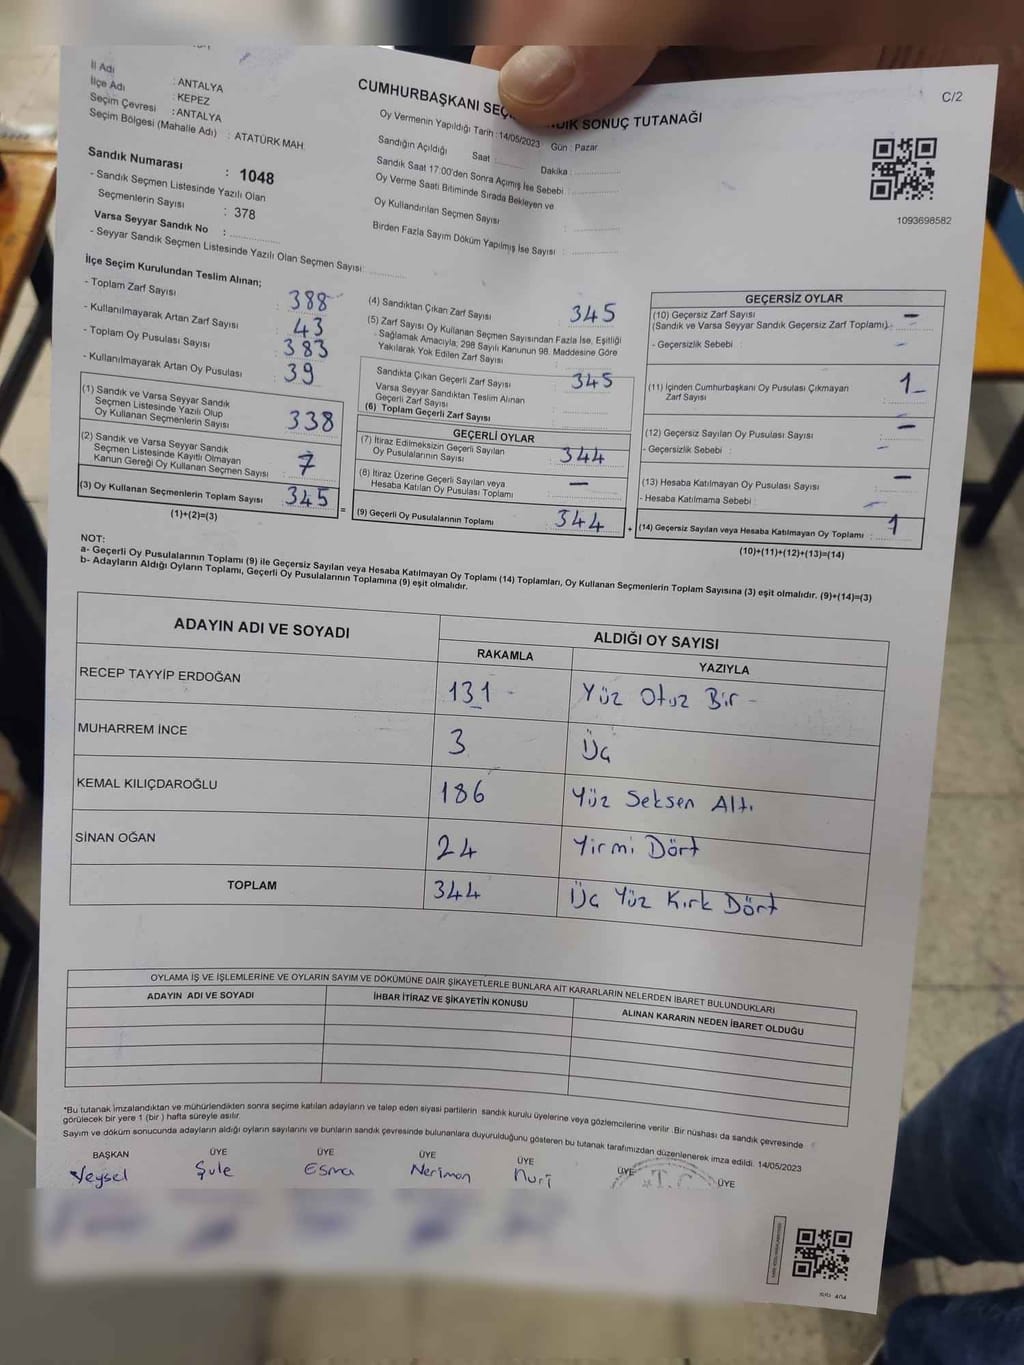 İl Adı : ANTALYA
İlçe Adı : KEPEZ
Seçim Çevresi : ANTALYA
Seçim Bölgesi (Mahalle Adı) : ATATÜRK MAH.
Sandık Numarası : 1048
- Sandık Seçmen Listesinde Yazılı Olan
Seçmenlerin Sayısı : 378
Varsa Seyyar Sandık No :
- Seyyar Sandık Seçmen Listesinde Yazılı Olan Seçmen Sayısı:
CUMHURBAŞKANI SEÇ DIK SONUÇ TUTANAĞI
C/2
Oy Vermenin Yapıldığı Tarih : 14/05/2023 Gün : Pazar
Sandığın Açıldığı Saat : Dakika :
Sandık Saat 17:00'den Sonra Açımış İse Sebebi :
Oy Verme Saati Bitiminde Sırada Bekleyen ve
Oy Kullandırılan Seçmen Sayısı :
Birden Fazla Sayım Döküm Yapılmış İse Sayısı :
1093698582
İlçe Seçim Kurulundan Teslim Alınan;
- Toplam Zarf Sayısı : 388
- Kullanılmayarak Artan Zarf Sayısı : 43
- Toplam Oy Pusulası Sayısı : 383
- Kullanılmayarak Artan Oy Pusulası : 39
(1) Sandık ve Varsa Seyyar Sandık
Seçmen Listesinde Yazılı Olup
Oy Kullanan Seçmenlerin Sayısı : 338
(2) Sandık ve Varsa Seyyar Sandık
Seçmen Listesinde Kayıtlı Olmayan
Kanun Gereği Oy Kullanan Seçmen Sayısı : 7
(3) Oy Kullanan Seçmenlerin Toplam Sayısı : 345
(1)+(2)=(3)
=
(4) Sandıktan Çıkan Zarf Sayısı : 345
(5) Zarf Sayısı Oy Kullanan Seçmen Sayısından Fazla İse, Eşitliği
- Sağlamak Amacıyla; 298 Sayılı Kanunun 98. Maddesine Göre
Yakılarak Yok Edilen Zarf Sayısı :
Sandıkta Çıkan Geçerli Zarf Sayısı : 345
Varsa Seyyar Sandıktan Teslim Alınan
Geçerli Zarf Sayısı :
(6) Toplam Geçerli Zarf Sayısı :
GEÇERLİ OYLAR
(7) İtiraz Edilmeksizin Geçerli Sayılan
Oy Pusulalarının Sayısı : 344
(8) İtiraz Üzerine Geçerli Sayılan veya
Hesaba Katılan Oy Pusulası Toplamı : —
(9) Geçerli Oy Pusulalarının Toplamı : 344
+
GEÇERSİZ OYLAR
(10) Geçersiz Zarf Sayısı
(Sandık ve Varsa Seyyar Sandık Geçersiz Zarf Toplamı): —
- Geçersizlik Sebebi : —
(11) İçinden Cumhurbaşkanı Oy Pusulası Çıkmayan
Zarf Sayısı : 1
(12) Geçersiz Sayılan Oy Pusulası Sayısı : —
- Geçersizlik Sebebi : —
(13) Hesaba Katılmayan Oy Pusulası Sayısı : —
- Hesaba Katılmama Sebebi : —
(14) Geçersiz Sayılan veya Hesaba Katılmayan Oy Toplamı : 1
(10)+(11)+(12)+(13)=(14)
NOT:
a- Geçerli Oy Pusulalarının Toplamı (9) ile Geçersiz Sayılan veya Hesaba Katılmayan Oy Toplamı (14) Toplamları, Oy Kullanan Seçmenlerin Toplam Sayısına (3) eşit olmalıdır. (9)+(14)=(3)
b- Adayların Aldığı Oyların Toplamı, Geçerli Oy Pusulalarının Toplamına (9) eşit olmalıdır.
ADAYIN ADI VE SOYADI
ALDIĞI OY SAYISI
RAKAMLA YAZIYLA
RECEP TAYYİP ERDOĞAN 131 - Yüz Otuz Bir -
MUHARREM İNCE 3 Üç
KEMAL KILIÇDAROĞLU 186 Yüz Seksen Altı
SİNAN OĞAN 24 Yirmi Dört
TOPLAM 344 Üç Yüz Kırk Dört
OYLAMA İŞ VE İŞLEMLERİNE VE OYLARIN SAYIM VE DÖKÜMÜNE DAİR ŞİKAYETLERLE BUNLARA AİT KARARLARIN NELERDEN İBARET BULUNDUKLARI
ADAYIN ADI VE SOYADI İHBAR İTİRAZ VE ŞİKAYETİN KONUSU ALINAN KARARIN NEDEN İBARET OLDUĞU
*Bu tutanak imzalandıktan ve mühürlendikten sonra seçime katılan adayların ve talep eden siyasi partilerin sandık kurulu üyelerine veya gözlemcilerine verilir. Bir nüshası da sandık çevresinde
görülecek bir yere 1 (bir) hafta süreyle asılır.
Sayım ve döküm sonucunda adayların aldığı oyların sayılarını ve bunların sandık çevresinde bulunanlara duyurulduğunu gösteren bu tutanak tarafımızdan düzenlenerek imza edildi. 14/05/2023
BAŞKAN ÜYE ÜYE ÜYE ÜYE ÜYE ÜYE
Veysel Şule Esma Neriman Nuri
T.C.